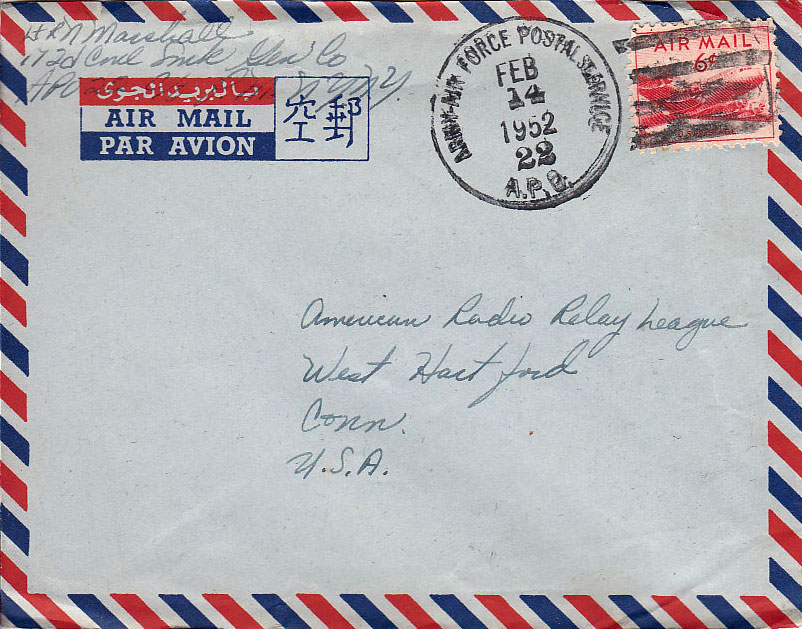 H R N Marshall
172d Cml Smk Gen Co
APO
بالبريد الجوى
AIR MAIL
PAR AVION
郵
空
ARMY-AIR FORCE POSTAL SERVICE
FEB
14
1952
22
A.P.O.
AIR MAIL
6¢
American Radio Relay League
West Hartford
Conn.
U.S.A.